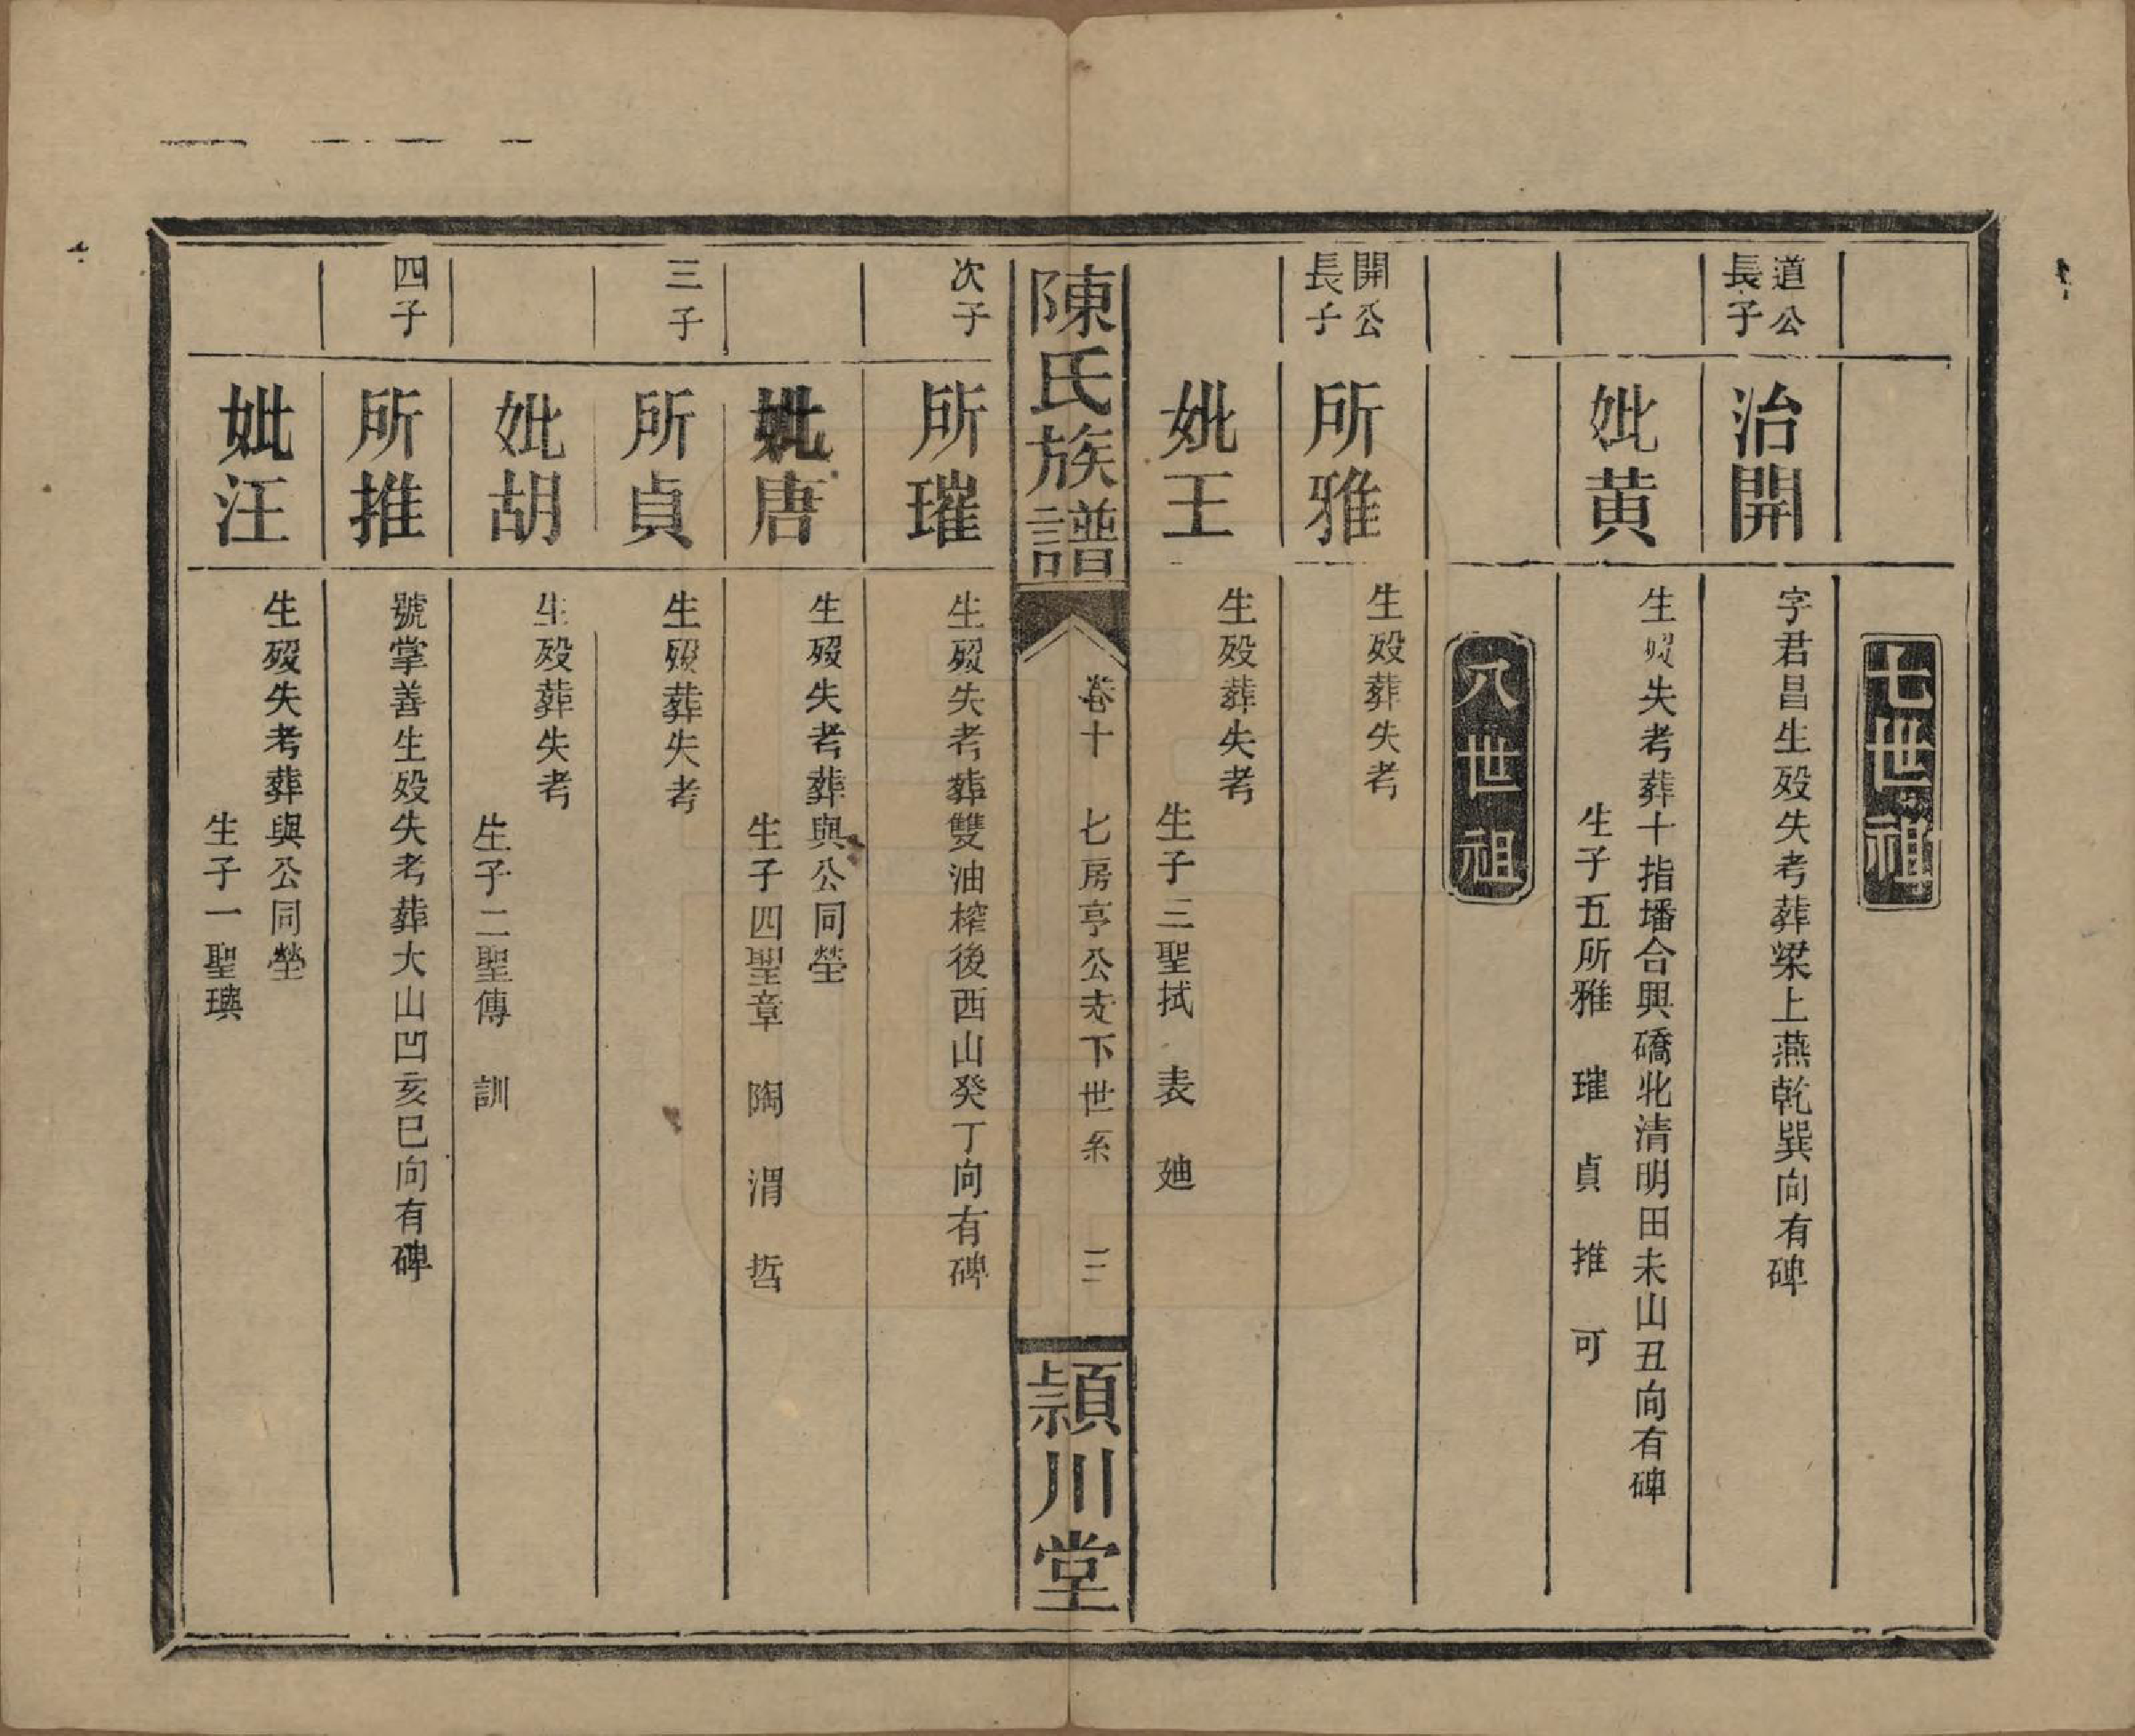 七世祖
道公
長子
治開
字君昌生歿失考葬梁上燕乾巽向有碑
妣黄
生歿失考葬十指墦合興礄北清明田未山丑向有碑
生子五所雅　璀　貞　推　可
八世祖
開公
長子
所雅
生歿葬失考
妣王
生歿葬失考
生子三聖拭　表　廸
陳氏族譜
卷十　七房亨公支下世系　三
潁川堂
次子
所璀
生歿失考葬雙油榨後西山癸丁向有碑
妣唐
生歿失考葬與公同塋
生子四聖章　陶　渭　哲
三子
所貞
生歿葬失考
妣胡
生歿葬失考
生子二聖傳　訓
四子
所推
號掌善生歿失考葬大山凹亥巳向有碑
妣汪
生歿失考葬與公同塋
生子一聖璵